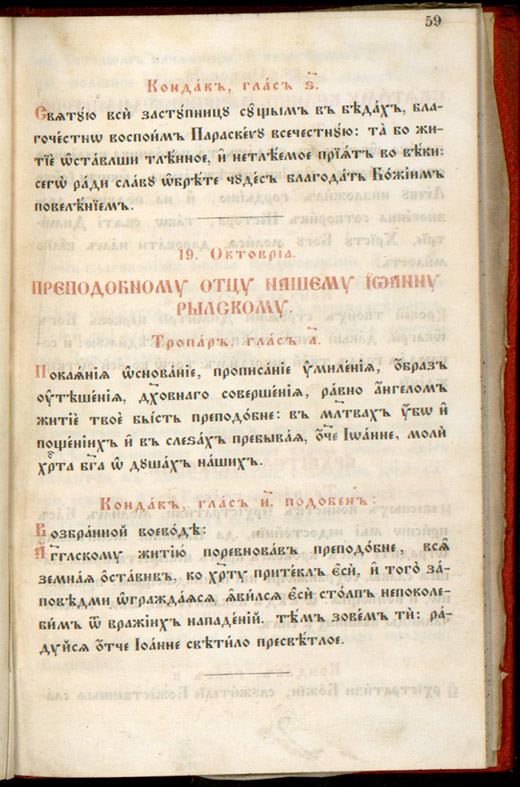 59
Конда́къ, гла́съ ѕ҃.
Свѧтꙋ́ю всѝ застꙋ́пницꙋ сꙋ́щымъ въ бѣда́хъ, бла-
гоче́стнѡ воспои́мъ Параске́ѵꙋ всече́стнꙋю: та́ бо жи-
тїѐ ѡ҆ста́вльши тлѣ́нное, и҆ нетлѣ́емое прїѧ́тъ во вѣ́ки:
сегѡ̀ ра́ди сла́вꙋ ѡ҆брѣ́те чꙋде́съ благода́ть Бо́жїимъ
повелѣ́нїемъ.
19. Октовріа.
ПРЕПОДОБНОМУ ОТЦУ НАШЕМУ ІѠАННУ
РЫЛСКОМУ.
Тропа́ръ, гла́съ а҃.
Покаѧ́нїѧ ѡ҆снова́нїе, прописа́нїе ᲂу҆миле́нїѧ, ѻ҆́бразъ
ᲂу҆тѣше́нїѧ, дх҃о́внагѡ соверше́нїѧ, ра́вно а҆́нгеломъ
житїѐ твоѐ бы́сть преподо́бне: въ мл҃твахъ ᲂу҆́бѡ и҆
поще́нїихъ и҆ въ слеза́хъ пребыва́ѧ, ѻ҆́ч҃е Іѡа́нне, молѝ
хр҃та̀ бг҃а ѡ҆ дꙋша́хъ на́шихъ.
Конда́къ, гла́съ и҃. подо́бенъ:
Возбра́нной воево́дѣ:
А҆́гг҃лскомꙋ житїю̀ поревнова́въ преподо́бне, всѧ̑
земна́ѧ ѻ҆ста́вивъ, ко хр҃тꙋ̀ прите́клъ є҆сѝ, и҆ тогѡ̀ за́-
повѣдми ѡ҆гражда́ѧсѧ ꙗ҆ви́лсѧ є҆сѝ сто́лпъ непоколе-
би́мъ ѿ вра́жїихъ нападе́нїй. тѣ́мъ зове́мъ тѝ: ра́-
дꙋйсѧ ѻ҆́тче Іѡа́нне свѣти́ло пресвѣ́тлое.